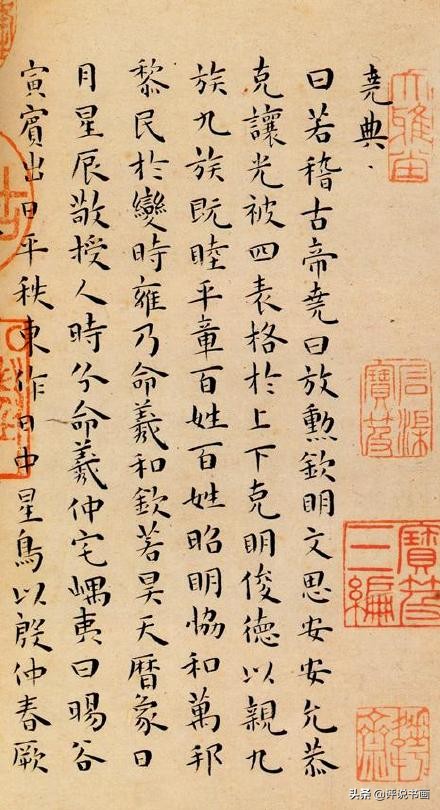 堯典
曰若稽古帝堯曰放勳欽明文思安安允恭
克讓光被四表格於上下克明俊德以親九
族九族既睦平章百姓百姓昭明恊和萬邦
黎民於變時雍乃命羲和欽若昊天曆象日
月星辰敬授人時分命羲仲宅嵎夷曰暘谷
寅賓出日平秩東作日中星鳥以殷仲春厥
寶笈
三編
头条 @评说书画